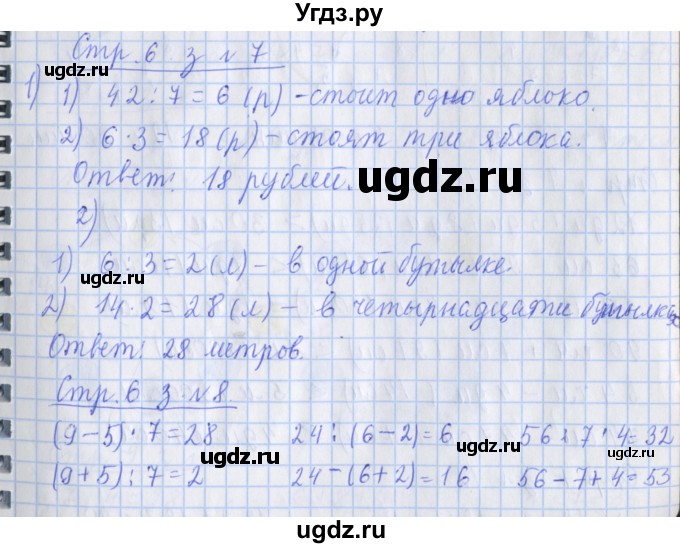 Угдз.ру
Стр. 6 з № 7
ugdz.ru
ugdz.ru
1) 1) 42 : 7 = 6 (р) – стоит одно яблоко.
2) 6 · 3 = 18 (р) – стоят три яблока.
Ответ: 18 рублей.
ugdz.ru
2)
1) 6 : 3 = 2 (л) – в одной бутылке.
ugdz.ru
2) 14 · 2 = 28 (л) – в четырнадцати бутылках
Ответ: 28 метров.
Стр. 6 з. № 8.
(9 – 5) · 7 = 28 24 : (6 – 2) = 6 56 : 7 · 4 = 32
ugdz.ru ugdz.ru
(9 + 5) : 7 = 2 24 – (6 + 2) = 16 56 – 7 + 4 = 53
ugdz.ru
ugdz.ru